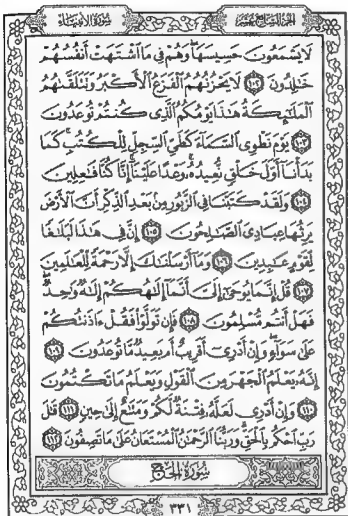 الجزء السابع عشر سورة الأنبياء
لَا يَسْمَعُونَ حَسِيسَهَا وَهُمْ فِي مَا اشْتَهَتْ أَنفُسُهُمْ
خَٰلِدُونَ ١٠٢ لَا يَحْزُنُهُمُ الْفَزَعُ الْأَكْبَرُ وَتَتَلَقَّىٰهُمُ
الْمَلَٰئِكَةُ هَٰذَا يَوْمُكُمُ الَّذِي كُنتُمْ تُوعَدُونَ
١٠٣ يَوْمَ نَطْوِي السَّمَاءَ كَطَيِّ السِّجِلِّ لِلْكُتُبِ كَمَا
بَدَأْنَا أَوَّلَ خَلْقٍ نُّعِيدُهُ وَعْدًا عَلَيْنَا إِنَّا كُنَّا فَٰعِلِينَ
١٠٤ وَلَقَدْ كَتَبْنَا فِي الزَّبُورِ مِنۢ بَعْدِ الذِّكْرِ أَنَّ الْأَرْضَ
يَرِثُهَا عِبَادِيَ الصَّٰلِحُونَ ١٠٥ إِنَّ فِي هَٰذَا لَبَلَٰغًا
لِّقَوْمٍ عَٰبِدِينَ ١٠٦ وَمَا أَرْسَلْنَٰكَ إِلَّا رَحْمَةً لِّلْعَٰلَمِينَ
١٠٧ قُلْ إِنَّمَا يُوحَىٰ إِلَيَّ أَنَّمَا إِلَٰهُكُمْ إِلَٰهٌ وَٰحِدٌ
فَهَلْ أَنتُم مُّسْلِمُونَ ١٠٨ فَإِن تَوَلَّوْا فَقُلْ ءَاذَنتُكُمْ
عَلَىٰ سَوَاءٍ وَإِنْ أَدْرِي أَقَرِيبٌ أَم بَعِيدٌ مَّا تُوعَدُونَ ١٠٩
إِنَّهُ يَعْلَمُ الْجَهْرَ مِنَ الْقَوْلِ وَيَعْلَمُ مَا تَكْتُمُونَ
١١٠ وَإِنْ أَدْرِي لَعَلَّهُ فِتْنَةٌ لَّكُمْ وَمَتَٰعٌ إِلَىٰ حِينٍ ١١١ قَٰلَ
رَبِّ احْكُم بِالْحَقِّ وَرَبُّنَا الرَّحْمَٰنُ الْمُسْتَعَانُ عَلَىٰ مَا تَصِفُونَ ١١٢
سورة الحج
٣٣١